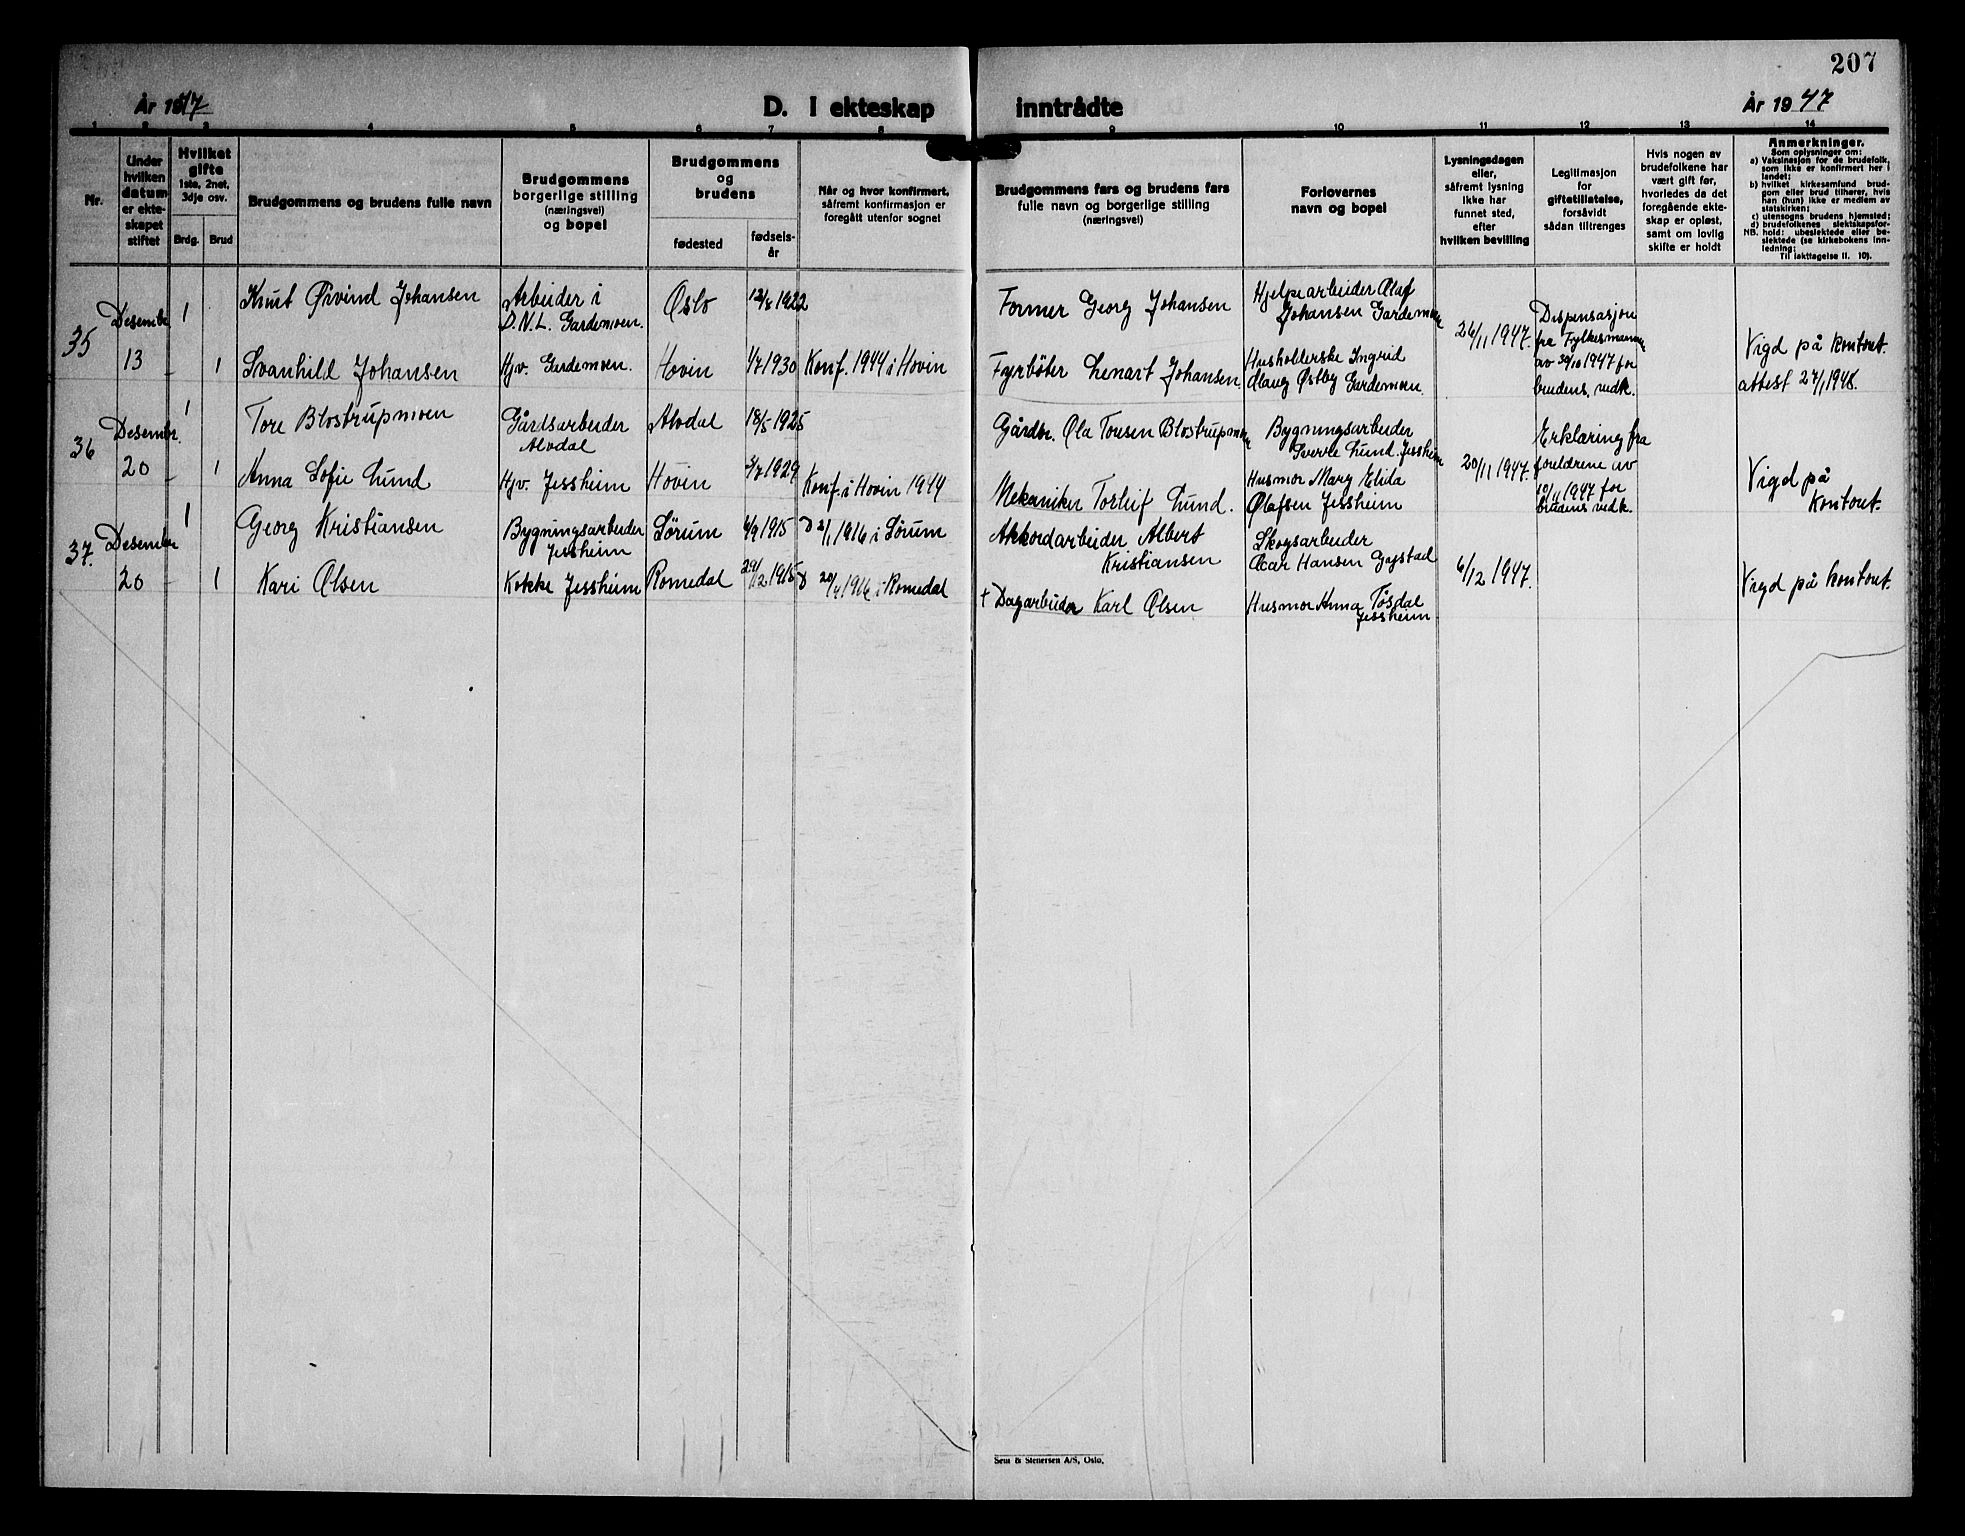 207
År 1947
D. I ekteskap inntrådte
År 1947
1 2 3 4 5 6 7 8 9 10 11 12 13 14
Nr.
Under
hvilken
datum
er ekte-
skapet
stiftet
Hvilket
gifte
1ste, 2net,
3dje osv.
Brdg. Brud
Brudgommens og brudens fulle navn
Brudgommens
borgerlige stilling
(næringsvei)
og bopel
Brudgommens
og
brudens
fødested
fødsels-
år
Når og hvor konfirmert,
såfremt konfirmasjon er
foregått utenfor sognet
Brudgommens fars og brudens fars
fulle navn og borgerlige stilling
(næringsvei)
Forlovernes
navn og bopel
Lysningsdagen
eller,
såfremt lysning
ikke har
funnet sted,
efter
hvilken bevilling
Legitimasjon
for
giftetillatelse,
forsåvidt
sådan tiltrenges
Hvis nogen av
brudefolkene har
vært gift før,
hvorledes da det
foregående ekte-
skap er opløst,
samt om lovlig
skifte er holdt
Anmerkninger.
Som oplysninger om:
a) Vaksinasjon for de brudefolk,
som ikke er konfirmert her i
landet;
b) hvilket kirkesamfund brud-
gom eller brud tilhører, hvis
han (hun) ikke er medlem av
statskirken;
c) utensogns brudens hjemsted;
d) brudefolkenes slektskapsfor-
NB. hold: ubeslektede eller be-
slektede (se kirkebokens inn-
ledning;
Til iakttagelse II. 10).
35
Desember
13
1
Knut Øivind Johansen
Arbeider i
D.N.L. Gardemoen.
Oslo
12/8 1922
Former Georg Johansen
Hjelpearbeider Olaf
Johansen Gardemoen
26/11 1947.
Dispensasjon
fra Fylkesmannen
av 30/10 1947 for
brudens vedk.
1
Svanhild Johansen
Hjv. Gardemoen.
Hovin
1/7 1930
Konf. 1944 i Hovin
Fyrbøter Lenart Johansen
Husholderske Ingrid
Olaug Østby Gardemoen.
Vigd på kontort.
attest 27/1 1948.
36
Desember.
20
1
Tore Blostrupmoen
Gårdsarbeider
Alvdal
Alvdal
18/5 1925
Gårdbr. Ola Tonsen Blostrupmoen
Bygningsarbeider
Sverre Lund. Jessheim
20/11 1947.
Erklæring fra
foreldrene av
10/11 1947 for
brudens vedk.
1
Anna Sofie Lund
Hjv. Jessheim
Hovin
3/7 1929
Konf. i Hovin 1944
Mekaniker Torleif Lund.
Husmor Mary Elida
Olafsen Jessheim
Vigd på
kontort.
37.
Desember
20
1
Georg Kristiansen
Bygningsarbeider
Jessheim
Sørum
6/9 1915
D 2/1 1916 i Sørum
Akkordarbeider Albert
Kristiansen
Skogsarbeider
Oscar Hansen Gystad
6/12 1947.
1
Kari Olsen
Kokke Jessheim
Romedal
29/12 1915
D 20/4 1916 i Romedal
† Dagarbeider Karl Olsen
Husmor Anna Tøsdal
Jessheim
Vigd på kontort.
Sem & Stenersen A/S, Oslo.